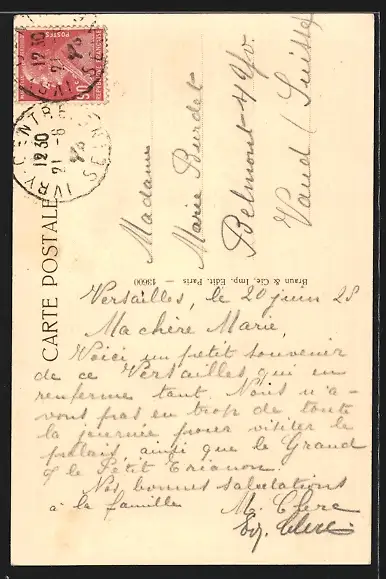 POSTES
90
IVRY CENTRE
1230
21 - 6
SEINE
CARTE POSTALE
Braun & Cie, Imp. Edit. Paris — 13600
Madame
Marie Burdet
Belmont s/ Yv.
Vaud (Suisse)
Versailles, le 20 juin 28
Ma chère Marie,
Voici un petit souvenir
de ce Versailles qui en
renferme tant. Nous n'a-
vons pas eu trop de toute
la journée pour visiter le
palais, ainsi que le Grand
& le Petit Trianon.
Nos bonnes salutations
à la famille
M. Clerc
Ed. Clerc